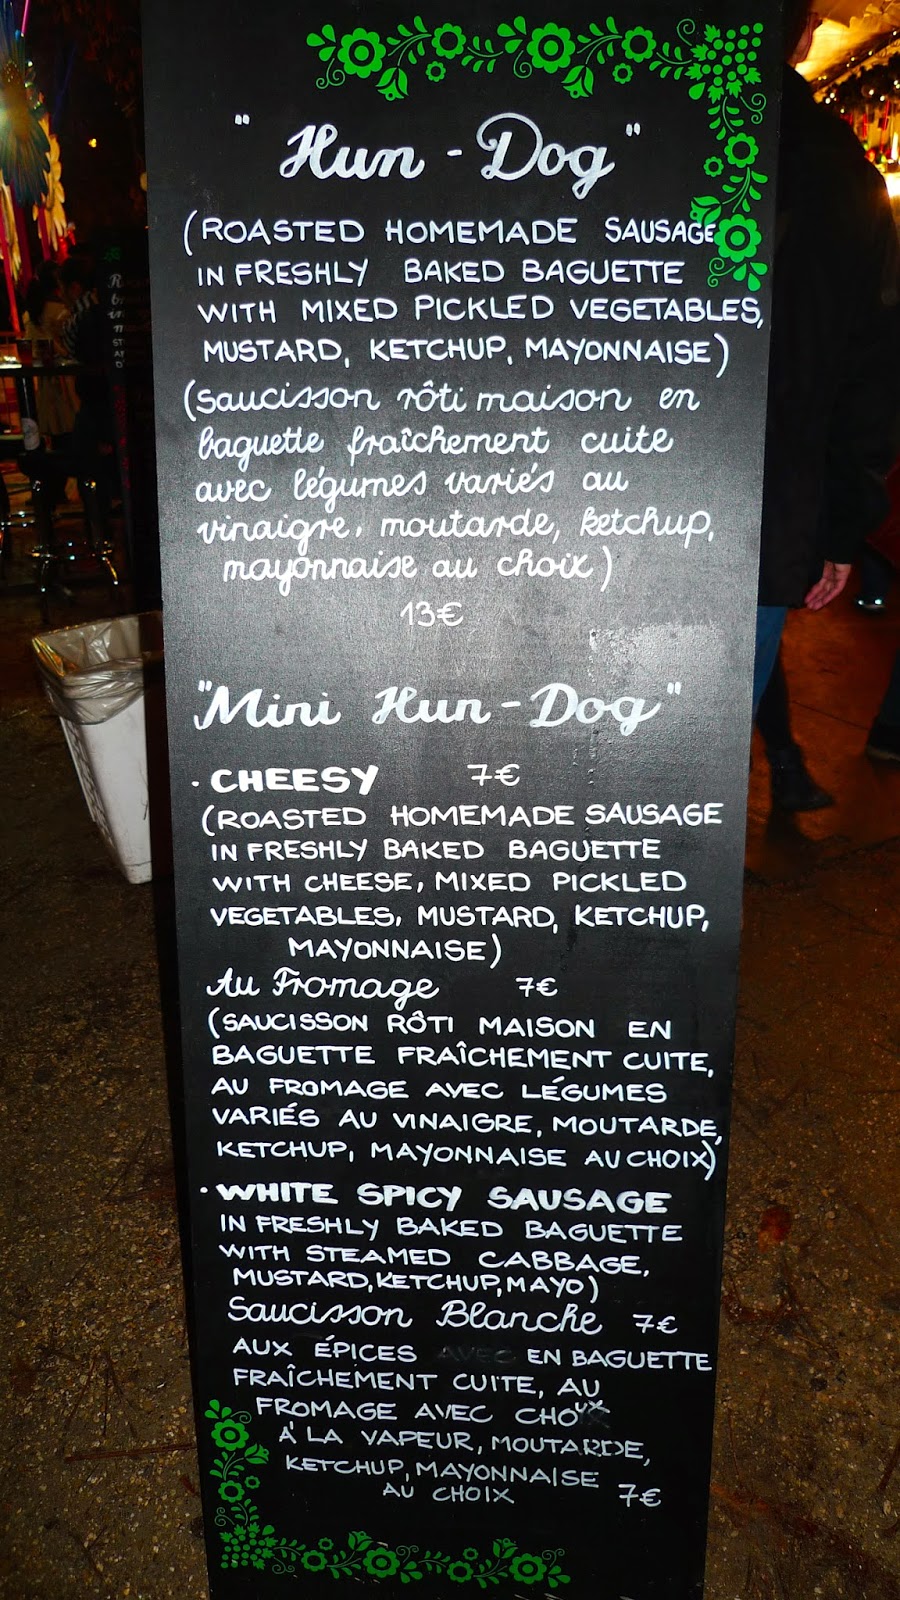 "Hun-Dog"
(ROASTED HOMEMADE SAUSAGE
IN FRESHLY BAKED BAGUETTE
WITH MIXED PICKLED VEGETABLES,
MUSTARD, KETCHUP, MAYONNAISE)
(saucisson rôti maison en
baguette fraîchement cuite
avec légumes variés au
vinaigre, moutarde, ketchup,
mayonnaise au choix)
13€
"Mini Hun-Dog"
· CHEESY 7€
(ROASTED HOMEMADE SAUSAGE
IN FRESHLY BAKED BAGUETTE
WITH CHEESE, MIXED PICKLED
VEGETABLES, MUSTARD, KETCHUP,
MAYONNAISE)
Au Fromage 7€
(SAUCISSON RÔTI MAISON EN
BAGUETTE FRAÎCHEMENT CUITE,
AU FROMAGE AVEC LÉGUMES
VARIÉS AU VINAIGRE, MOUTARDE,
KETCHUP, MAYONNAISE AU CHOIX)
· WHITE SPICY SAUSAGE
IN FRESHLY BAKED BAGUETTE
WITH STEAMED CABBAGE,
MUSTARD, KETCHUP, MAYO)
Saucisson Blanche 7€
AUX ÉPICES EN BAGUETTE
FRAÎCHEMENT CUITE, AU
FROMAGE AVEC CHOUX
À LA VAPEUR, MOUTARDE,
KETCHUP, MAYONNAISE
AU CHOIX 7€